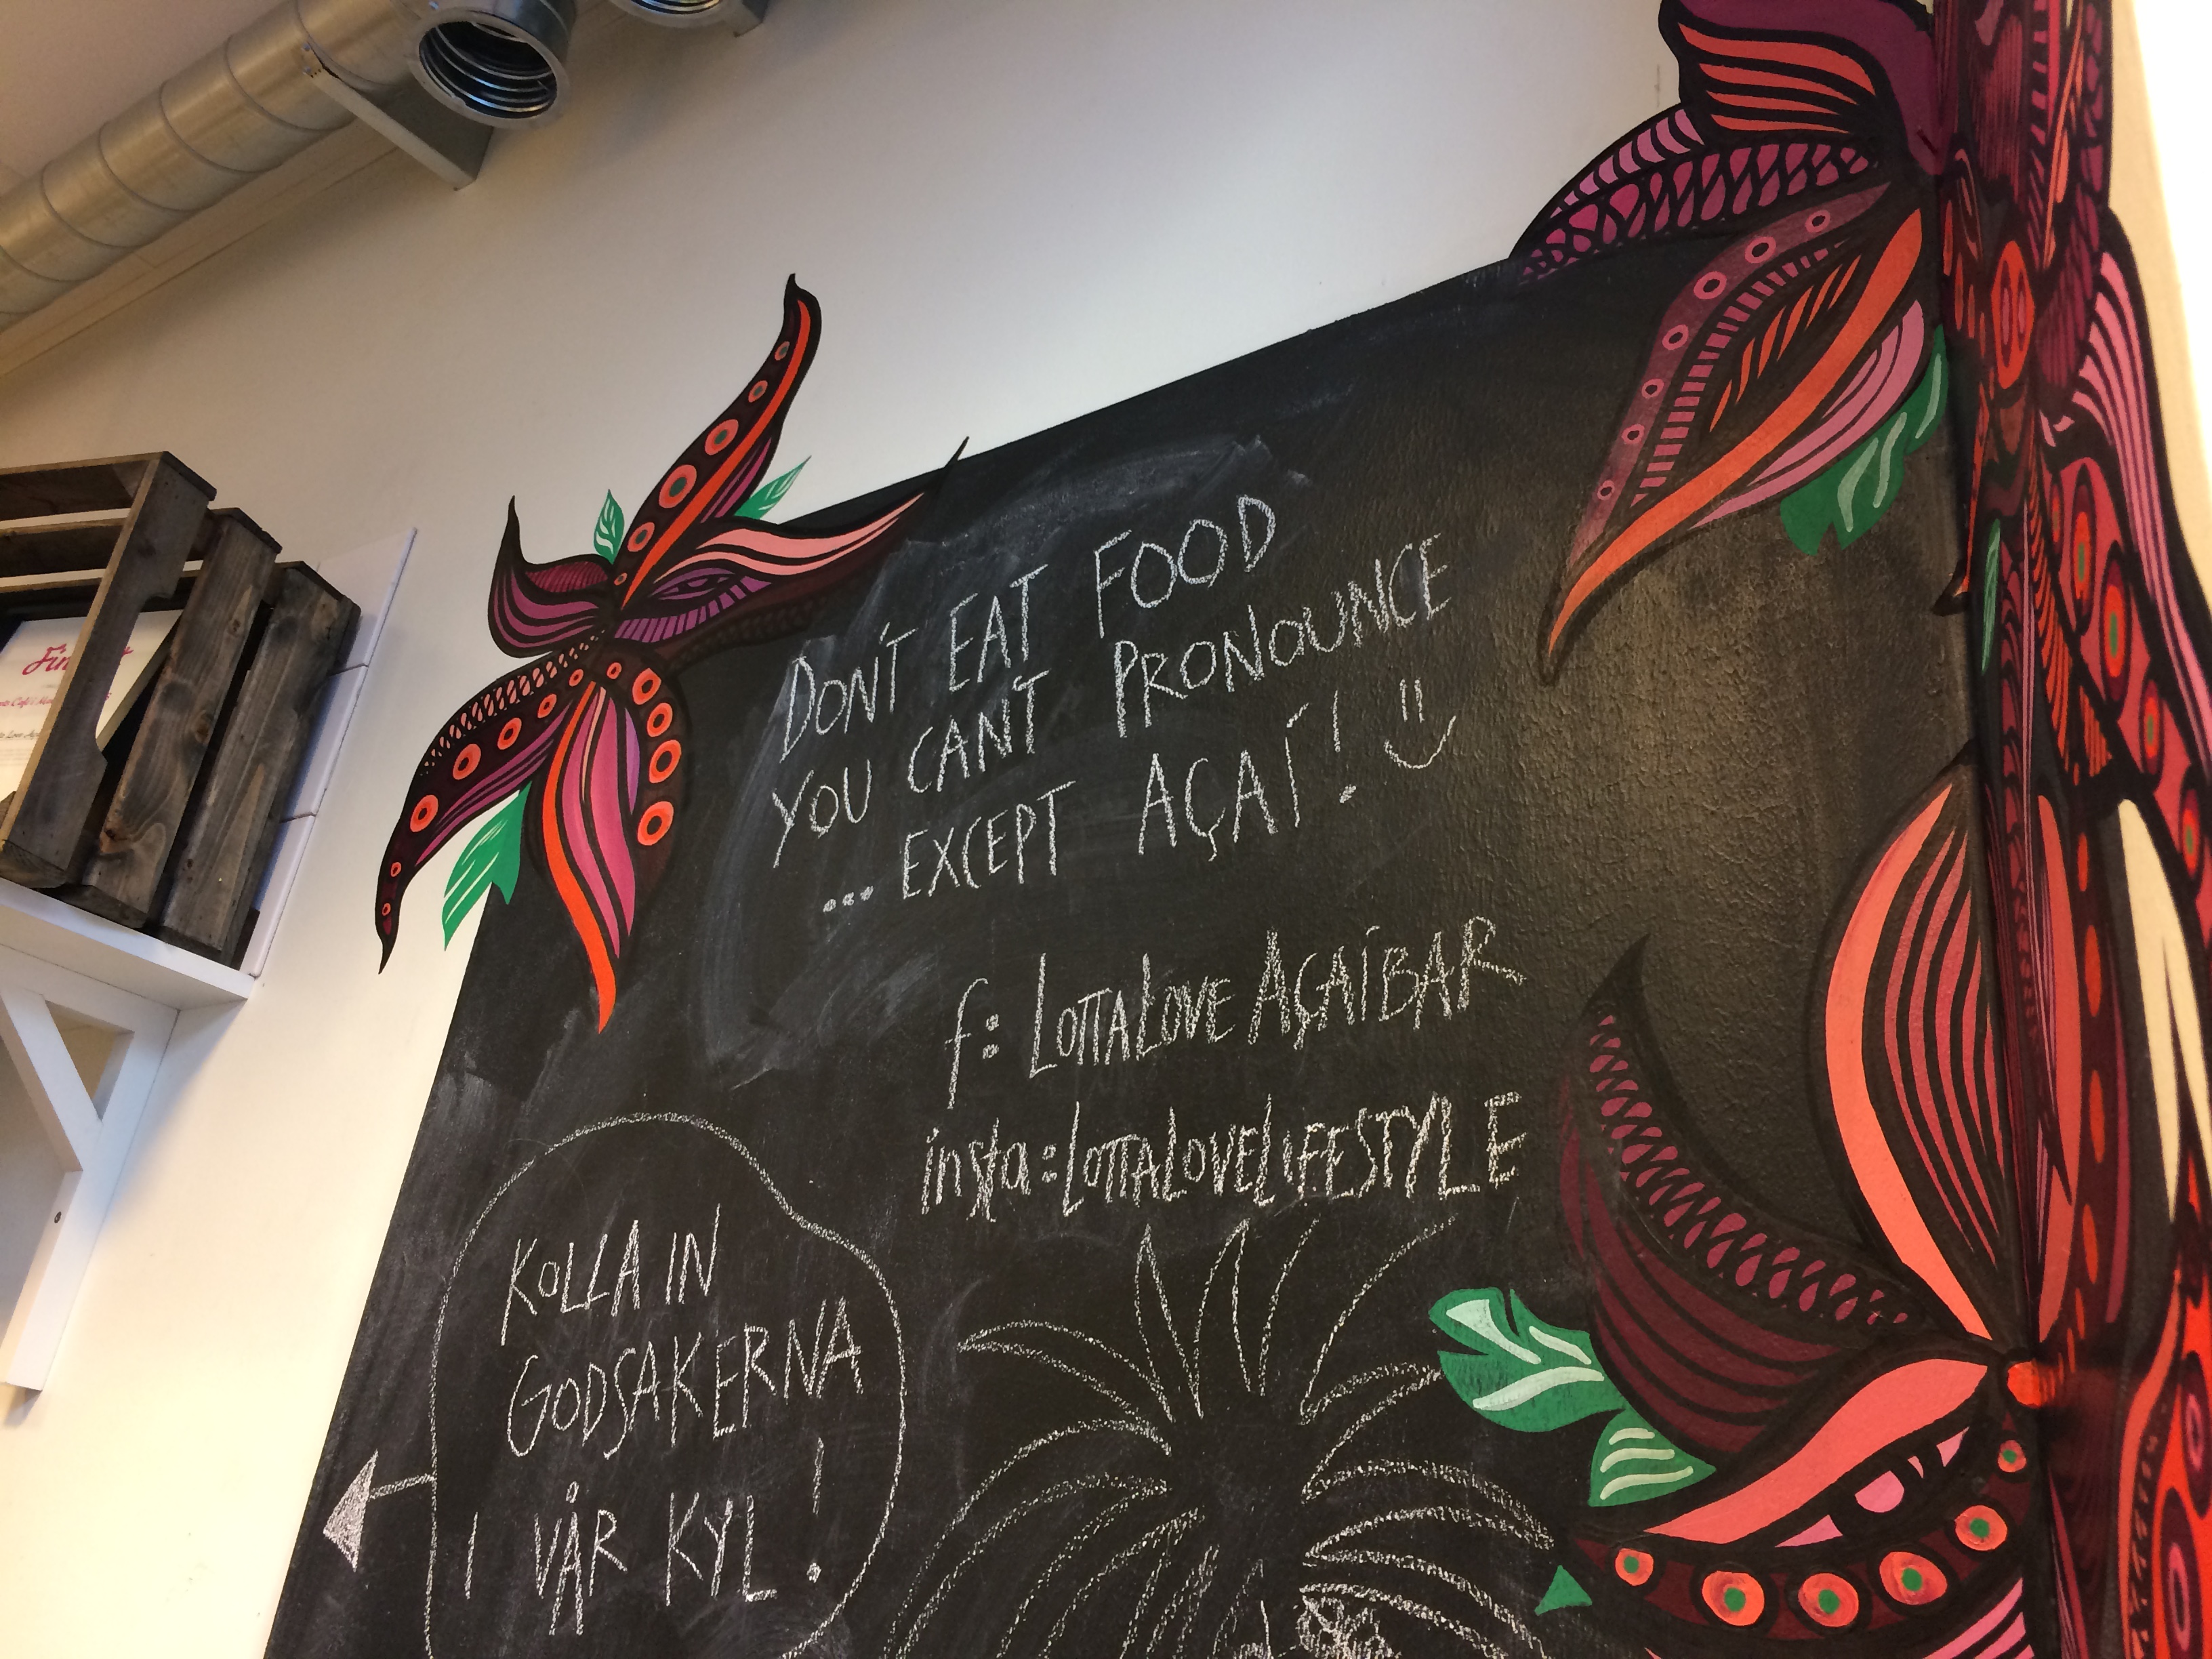 DON'T EAT FOOD
YOU CAN'T PRONOUNCE
... EXCEPT AÇAÍ!
f: LOTTALOVE AÇAÍBAR
insta: LOTTALOVELIFESTYLE
KOLLA IN
GODSAKERNA
I VÅR KYL!